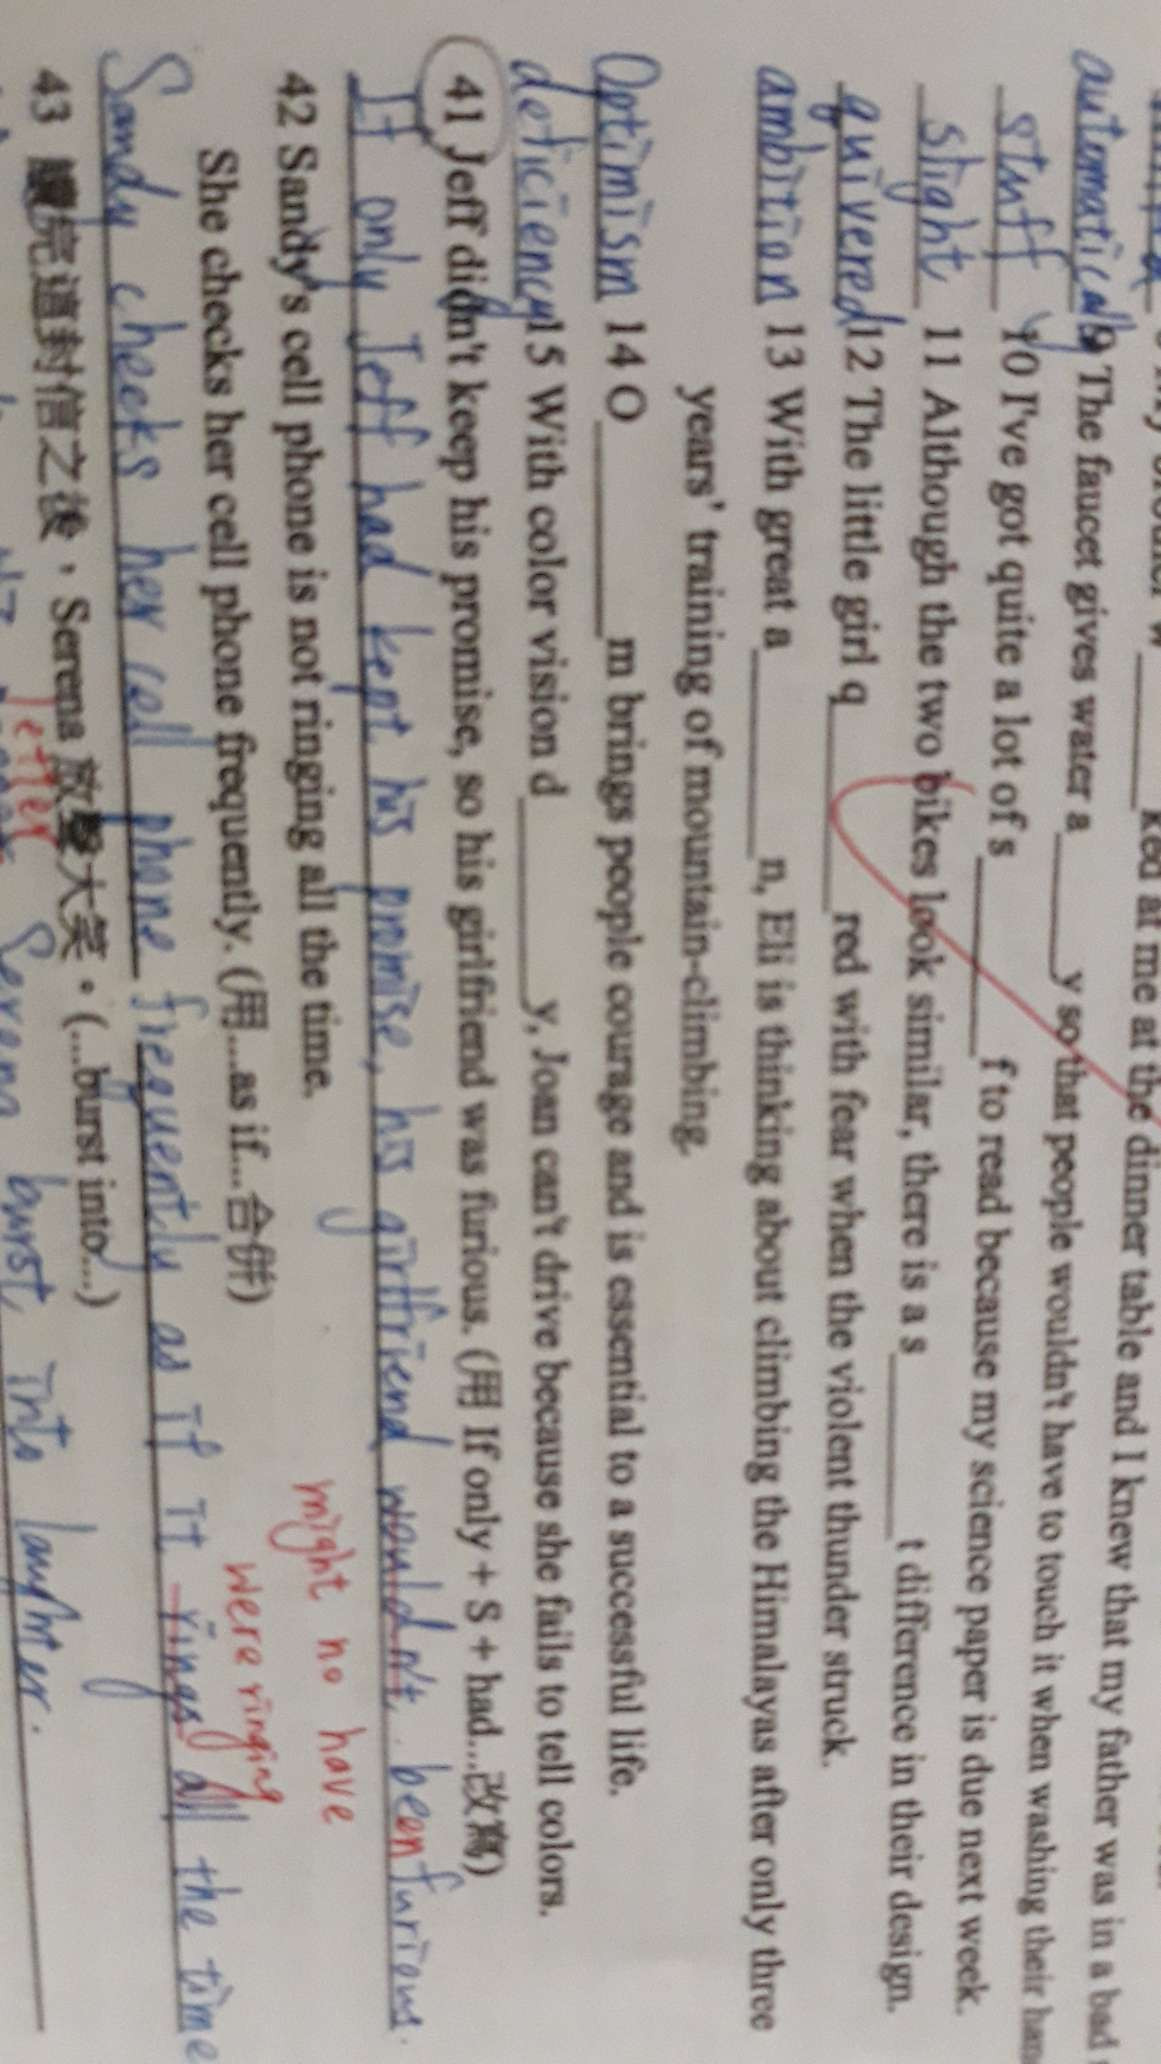 automatically 9 The faucet gives water a______y so that people wouldn't have to touch it when washing their
stuff 10 I've got quite a lot of s______f to read because my science paper is due next week.
slight 11 Although the two bikes look similar, there is a s______t difference in their design.
quivered 12 The little girl q______red with fear when the violent thunder struck.
ambition 13 With great a______n, Eli is thinking about climbing the Himalayas after only three
years' training of mountain-climbing.
Optimism 14 O______m brings people courage and is essential to a successful life.
deficiency 15 With color vision d______y, Joan can't drive because she fails to tell colors.
41 Jeff didn't keep his promise, so his girlfriend was furious. (用 If only + S + had...改寫)
might no have
If only Jeff had kept his promise, his girlfriend wouldn't been furious.
42 Sandy's cell phone is not ringing all the time.
She checks her cell phone frequently. (用...as if...合併)
were ringing
Sandy checks her cell phone frequently as if it rings all the time
43 讀完這封信之後，Serena 放聲大笑。(...burst into...)
letter
Serena burst into laughter.